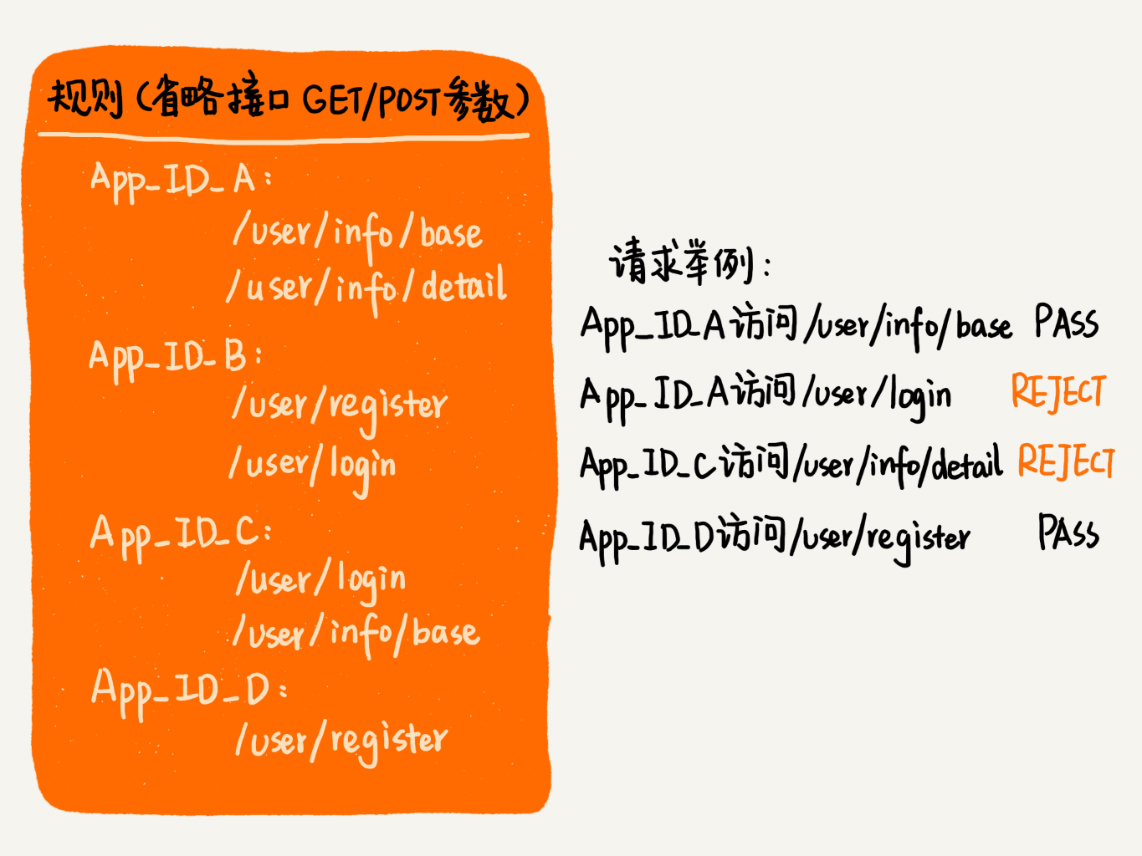 规则(省略接口 GET/POST参数)
App_ID_A:
/user/info/base
/user/info/detail
App_ID_B:
/user/register
/user/login
App_ID_C:
/user/login
/user/info/base
App_ID_D:
/user/register
请求举例:
App_ID_A访问/user/info/base PASS
App_ID_A访问/user/login REJECT
App_ID_C访问/user/info/detail REJECT
App_ID_D访问/user/register PASS